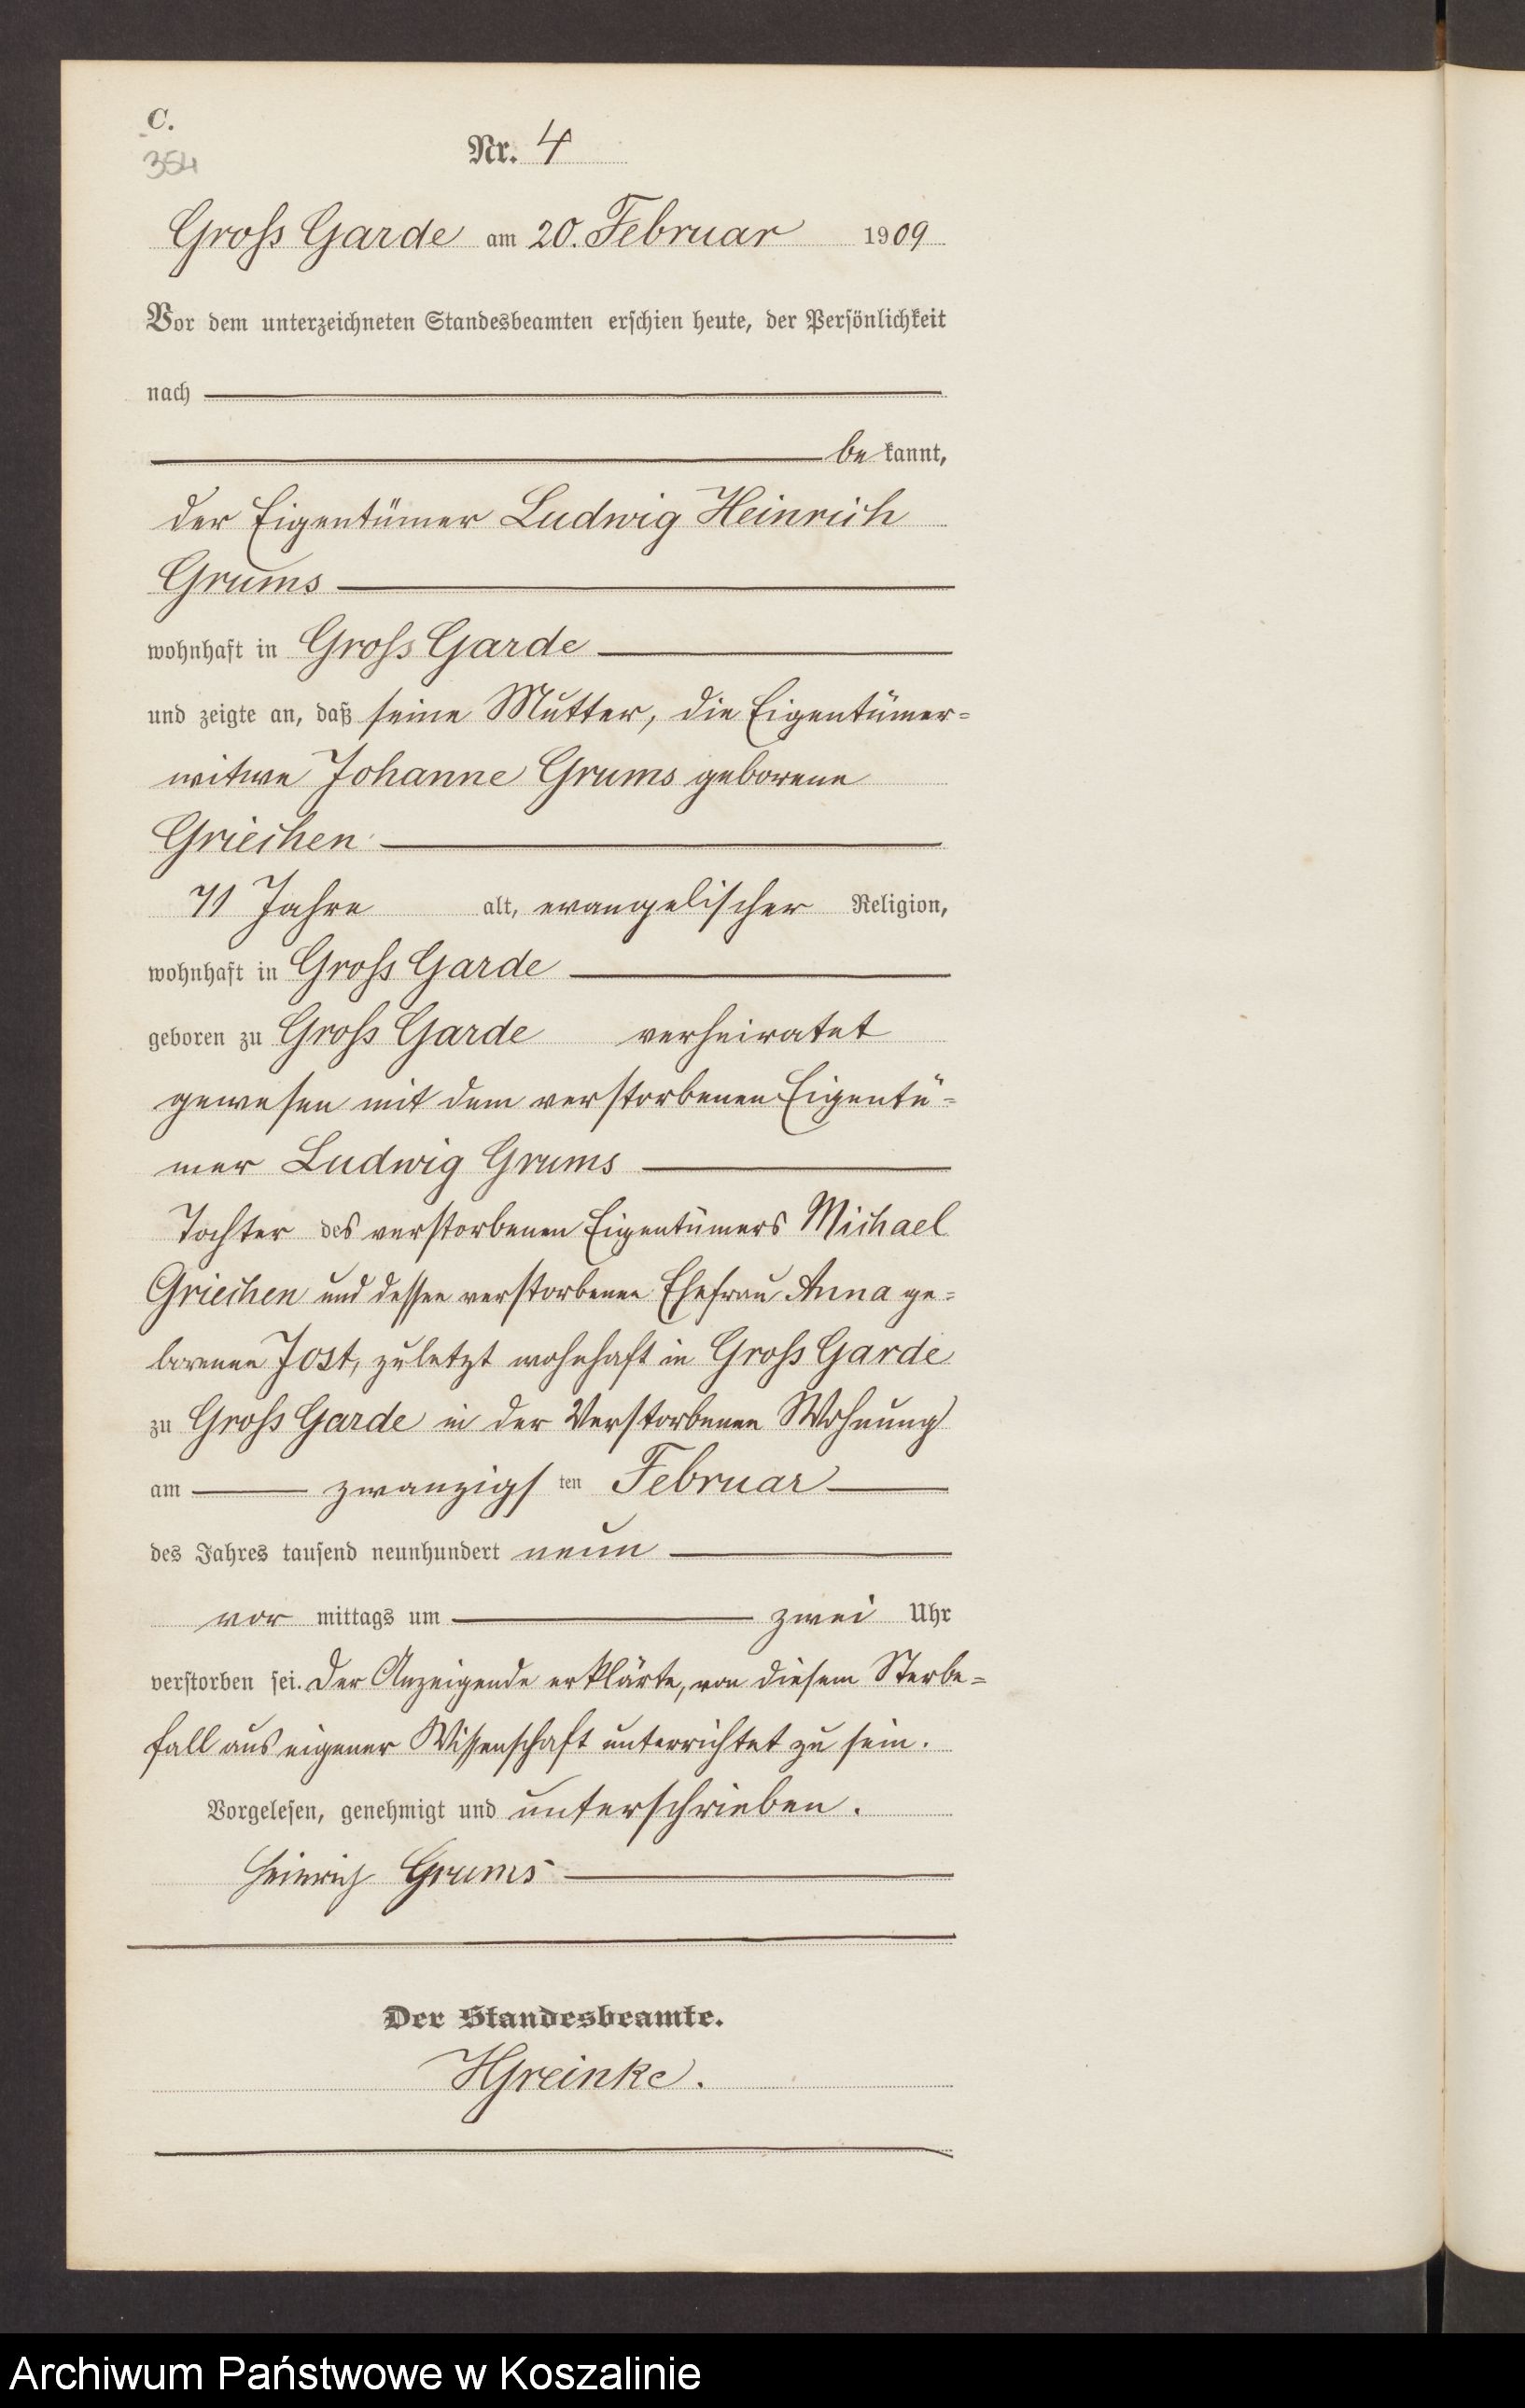 C.
354
Nr. 4
Gross Garde am 20. Februar 1909
Vor dem unterzeichneten Standesbeamten erschien heute, der Persönlichkeit
nach
be kannt,
der Eigentümer Ludwig Heinrich
Grums
wohnhaft in Gross Garde
und zeigte an, daß seine Mutter, die Eigentümer=
witwe Johanne Grums geborene
Griechen
71 Jahre alt, evangelischer Religion,
wohnhaft in Gross Garde
geboren zu Gross Garde verheiratet
gewesen mit dem verstorbenen Eigentü=
mer Ludwig Grums
Tochter des verstorbenen Eigentümers Michael
Griechen und dessen verstorbenen Ehefrau Anna ge=
borenen Jost, zuletzt wohnhaft in Gross Garde
zu Gross Garde in der Verstorbenen Wohnung
am zwanzigs ten Februar
des Jahres tausend neunhundert neun
vor mittags um zwei Uhr
verstorben sei. Der Anzeigende erklärte, von diesem Sterbe=
fall aus eigener Wissenschaft unterrichtet zu sein.
Vorgelesen, genehmigt und unterschrieben.
Heinrich Grums
Der Standesbeamte.
HGreinke.
Archiwum Państwowe w Koszalinie